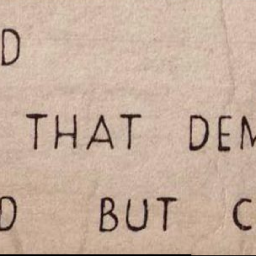 D
THAT DEM
D BUT C